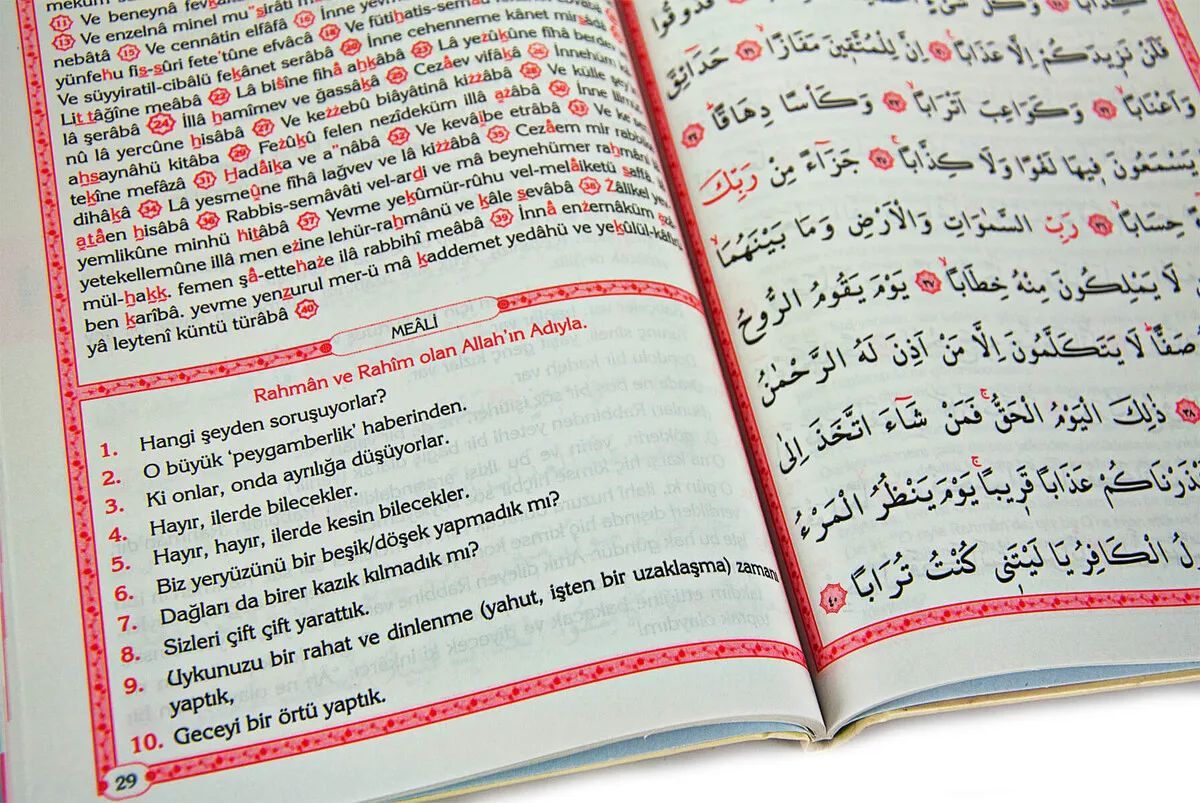 Ve beneynâ
13 Ve enzelnâ minel mu"sirâti
nebâtâ 15 Ve cennâtin elfâfâ 16 İnne
yünfehu fis-sûri fete'tûne efvâcâ 18 Ve fütihatis-sem
Ve süyyiratil-cibâlü fekânet serâbâ 20 İnne cehenneme kânet mirsâdâ
Lit tâğîne meâbâ 22 Lâ bisîne fîhâ ahkâbâ 23 Lâ yezûkûne fîhâ berden
lâ şerâbâ 24 İllâ hamîmev ve ğassâkâ 25 Cezâev vifâkâ 26 İnnehüm
nû lâ yercûne hisâbâ 27 Ve kezzebû biâyâtinâ kizzâbâ 28 Ve külle şey'
ahsaynâhü kitâba 29 Fezûkû felen nezîdeküm illâ azâbâ 30 İnne lilmüt
tekîne mefâzâ 31 Hadâika ve a"nâbâ 32 Ve kevâibe etrâbâ 33 Ve ke'sen
dihâkâ 34 Lâ yesmeûne fîhâ lağvev ve lâ kizzâbâ 35 Cezâem mir rabbi
atâen hisâbâ 36 Rabbis-semâvâti vel-ardi ve mâ beynehümer rahmâni lâ
yemlikûne minhü hitâbâ 37 Yevme yekûmür-rûhu vel-melâiketü saffâ. lâ
yetekellemûne illâ men ezine lehür-rahmânü ve kâle sevâbâ 38 Zâlikel yev
mül-hakk. femen şâ-ettehaze ilâ rabbihî meâbâ 39 İnnâ enzernâküm
ben karîbâ. yevme yenzurul mer-ü mâ kaddemet yedâhü ve yekûlül-kâfiru
yâ leytenî küntü türâbâ 40
MEÂLİ
Rahmân ve Rahîm olan Allah'ın Adıyla.
1. Hangi şeyden soruşuyorlar?
2. O büyük 'peygamberlik' haberinden.
3. Ki onlar, onda ayrılığa düşüyorlar.
4. Hayır, ilerde bilecekler.
5. Hayır, hayır, ilerde kesin bilecekler.
6. Biz yeryüzünü bir beşik/döşek yapmadık mı?
7. Dağları da birer kazık kılmadık mı?
8. Sizleri çift çift yarattık.
9. Uykunuzu bir rahat ve dinlenme (yahut, işten bir uzaklaşma) zamanı
yaptık,
10. Geceyi bir örtü yaptık.
29
فَذُوقُوا
فَلَنْ نَزٖيدَكُمْ اِلَّا عَذَابًا ﴿٣٠﴾ اِنَّ لِلْمُتَّقٖينَ مَفَازًا ﴿٣١﴾ حَدَٓائِقَ
وَاَعْنَابًا ﴿٣٢﴾ وَكَوَاعِبَ اَتْرَابًا ﴿٣٣﴾ وَكَأْسًا دِهَاقًا ﴿٣٤﴾
يَسْمَعُونَ فٖيهَا لَغْوًا وَلَا كِذَّابًا ﴿٣٥﴾ جَزَٓاءً مِنْ رَبِّكَ
حِسَابًا ﴿٣٦﴾ رَبِّ السَّمٰوَاتِ وَالْاَرْضِ وَمَا بَيْنَهُمَا
لَا يَمْلِكُونَ مِنْهُ خِطَابًا ﴿٣٧﴾ يَوْمَ يَقُومُ الرُّوحُ
صَفًّا لَا يَتَكَلَّمُونَ اِلَّا مَنْ اَذِنَ لَهُ الرَّحْمٰنُ
﴿٣٨﴾ ذٰلِكَ الْيَوْمُ الْحَقُّ فَمَنْ شَٓاءَ اتَّخَذَ اِلٰى
نْذَرْنَاكُمْ عَذَابًا قَرٖيبًا يَوْمَ يَنْظُرُ الْمَرْءُ
ولُ الْكَافِرُ يَا لَيْتَنٖى كُنْتُ تُرَابًا ﴿٤٠﴾